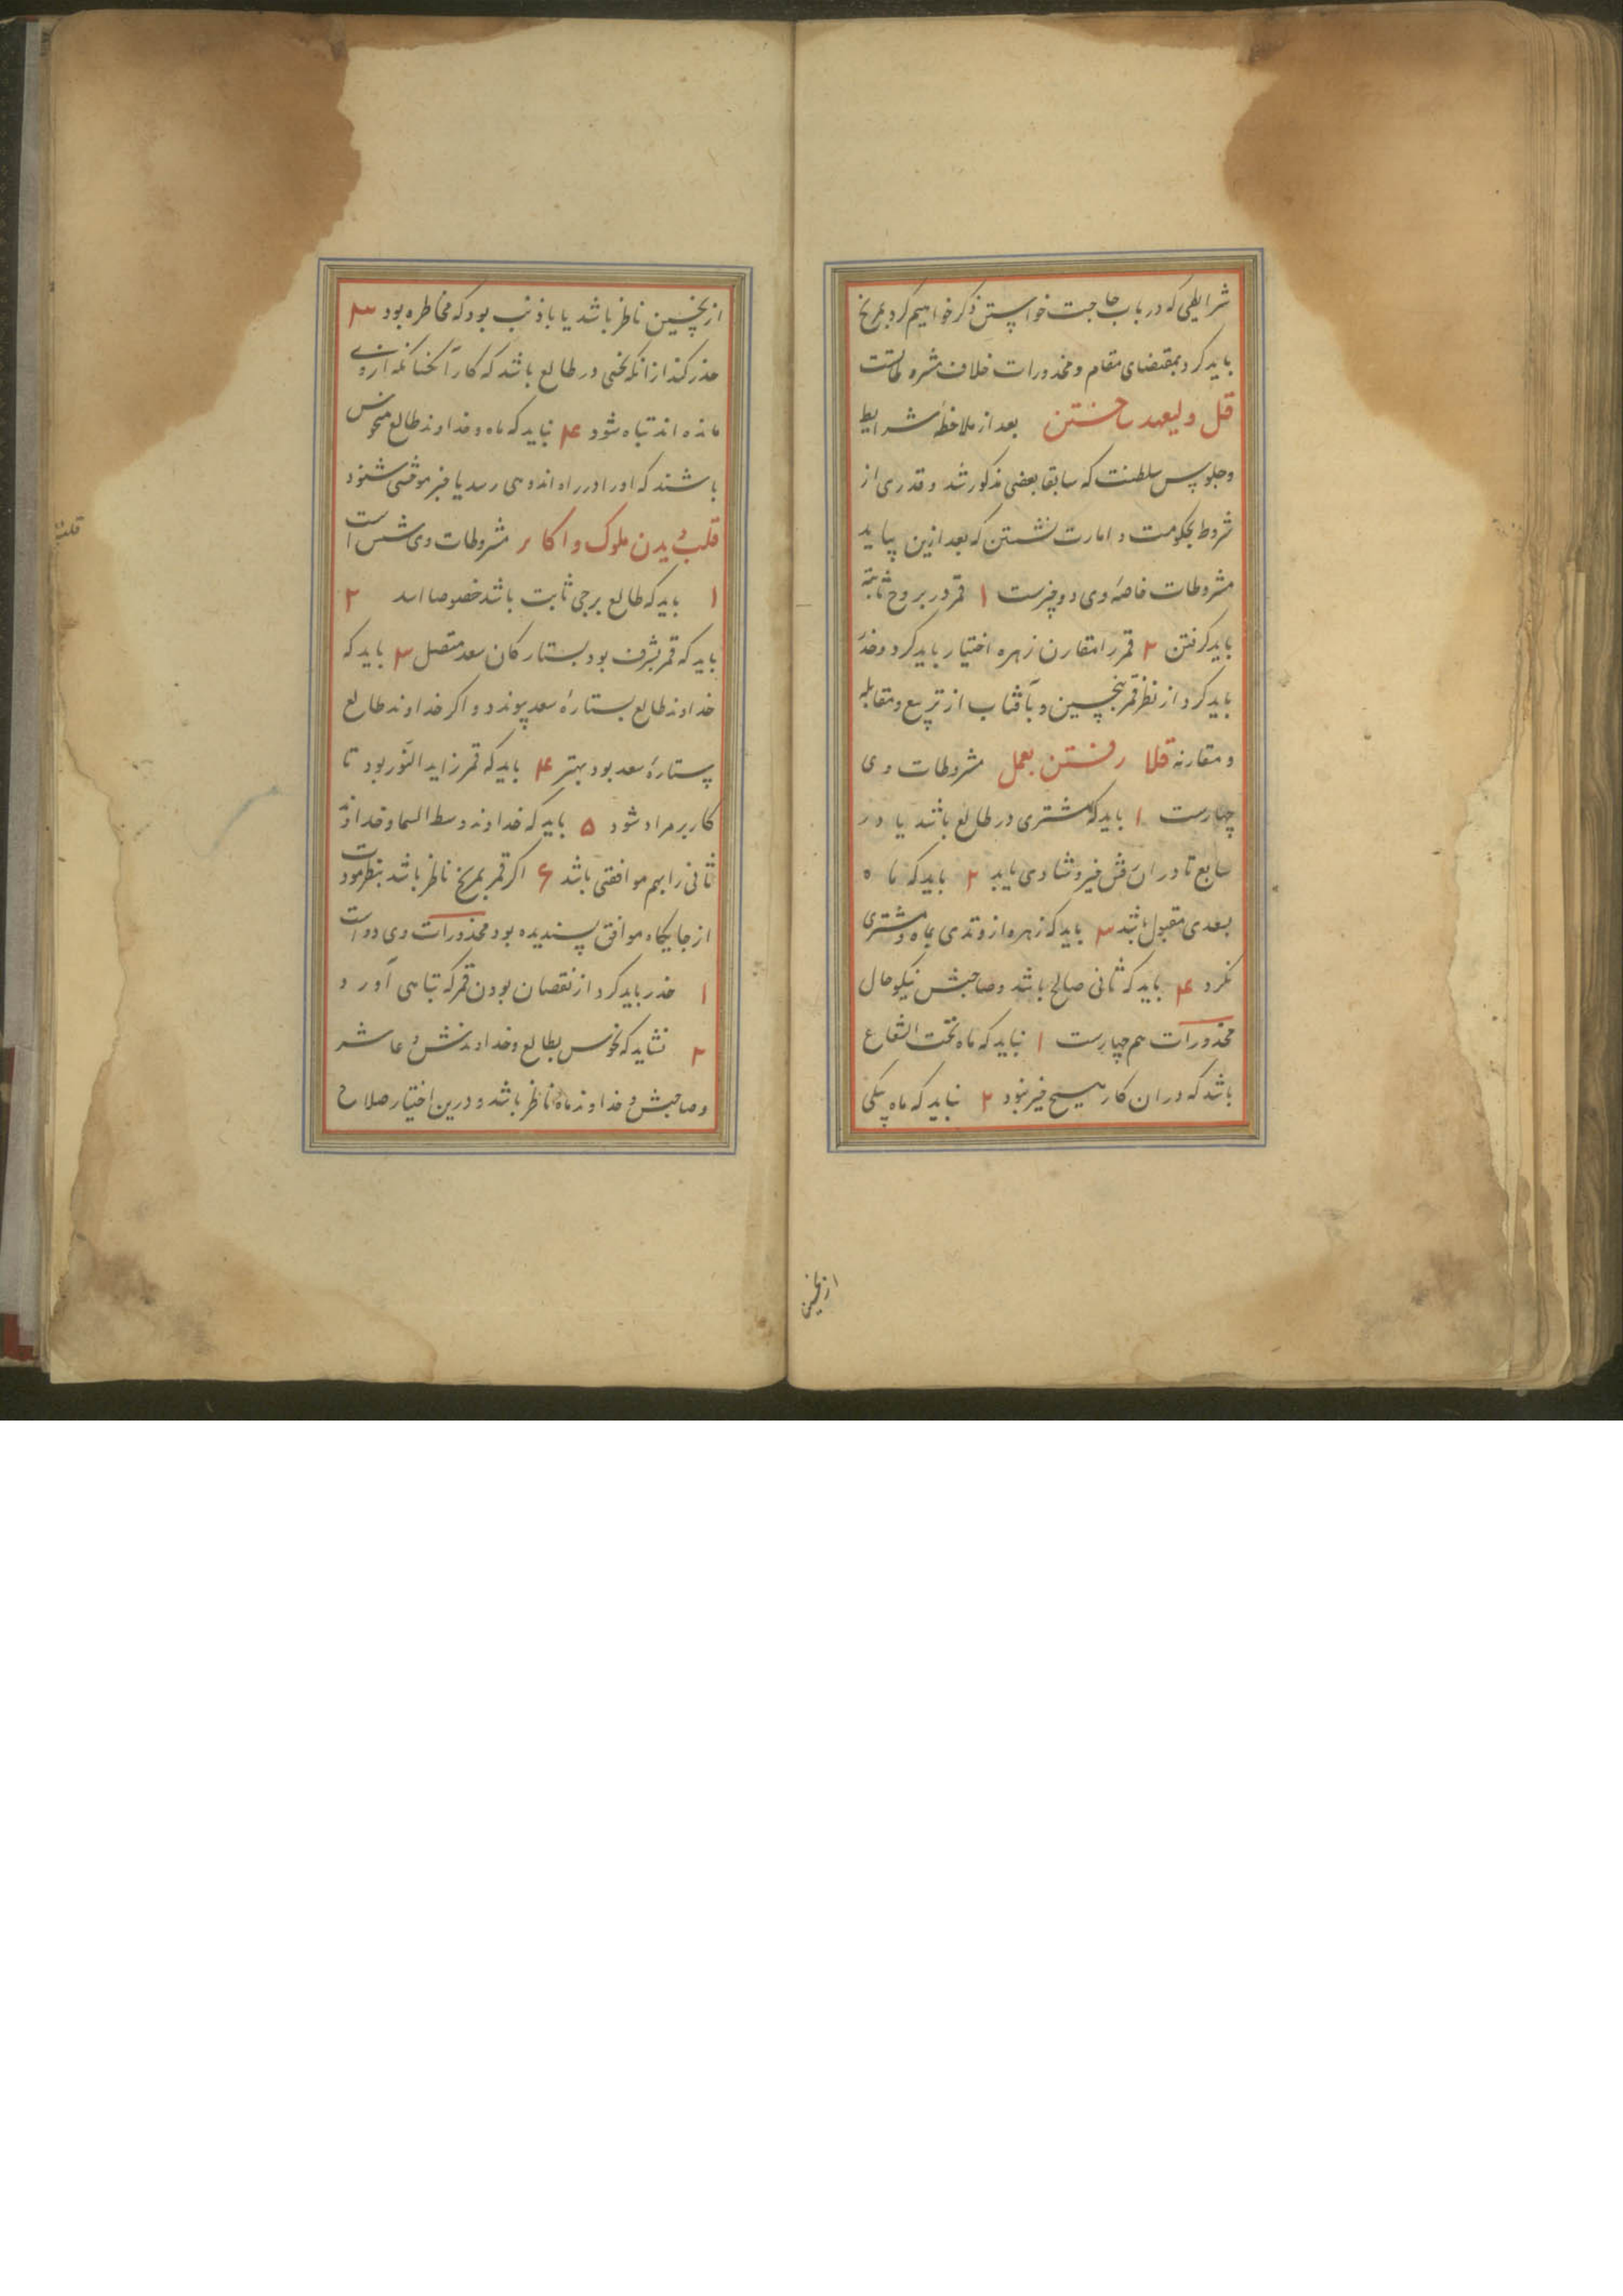 شرایطی که در باب حاجت خواستن ذکر خواهیم کرد بمریخ
باید کرد بمقتضای مقام و محذورات خلاف مشروطاتست
قل ولیعهد ساختن بعد از ملاحظهٔ شرایط
و جلوس سلطنت که سابقا بعضی مذکور شد و قدری از
شروط بحکومت و امارت نشستن که بعد ازین بیاید
مشروطات خاصهٔ وی دو چیزست ۱ قمر در بروج ثابته
باید گرفتن ۲ قمر را مقارن زهره اختیار باید کرد و حذر
باید کرد از نظر قمر بنحسین و بآفتاب از تربیع و مقابله
و مقارنه قلا رفتن بعمل مشروطات وی
چهارست ۱ باید که مشتری در طالع باشد یا در
سابع تا در ان خیر و شادی یابد ۲ باید که ماه
بسعدی مقبول باشد ۳ باید که زهره از وتدی بماه و مشتری
نگرد ۴ باید که ثانی صالح باشد و صاحبش نیکو حال
محذورات هم چهارست ۱ نباید که ماه تحت الشعاع
باشد که در ان کار هیچ خیر نبود ۲ نباید که ماه بیکی
از نحسین
از نحسین ناظر باشد یا با ذنب بود که مخاطره بود ۳
حذر کند از انکه نحسی در طالع باشد که کار آنجا که ازوی
مانده اند تباه شود ۴ نباید که ماه و خداوند طالع منحوس
باشند که او را در راه اندوهی رسد یا خبر موحشی شنود
قلب دیدن ملوک و اکابر مشروطات وی شش است
۱ باید که طالع برجی ثابت باشد خصوصا اسد ۲
باید که قمر بشرف بود بستارگان سعد متصل ۳ باید که
خداوند طالع بستارهٔ سعد پیوندد و اگر خداوند طالع
ستارهٔ سعد بود بهتر ۴ باید که قمر زاید النور بود تا
کار بر مراد شود ۵ باید که خداوند وسط السما و خداوند
ثانی را بهم موافقتی باشد ۶ اگر قمر بمریخ ناظر باشد بنظر مودت
از جایگاه موافق پسندیده بود محذورات وی دو است
۱ حذر باید کرد از نقصان بودن قمر که تباهی آورد
۲ نشاید که نحوس بطالع و خداوندش و عاشر
و صاحبش و خداوند ماه ناظر باشد و درین اختیار صلاح
قلب